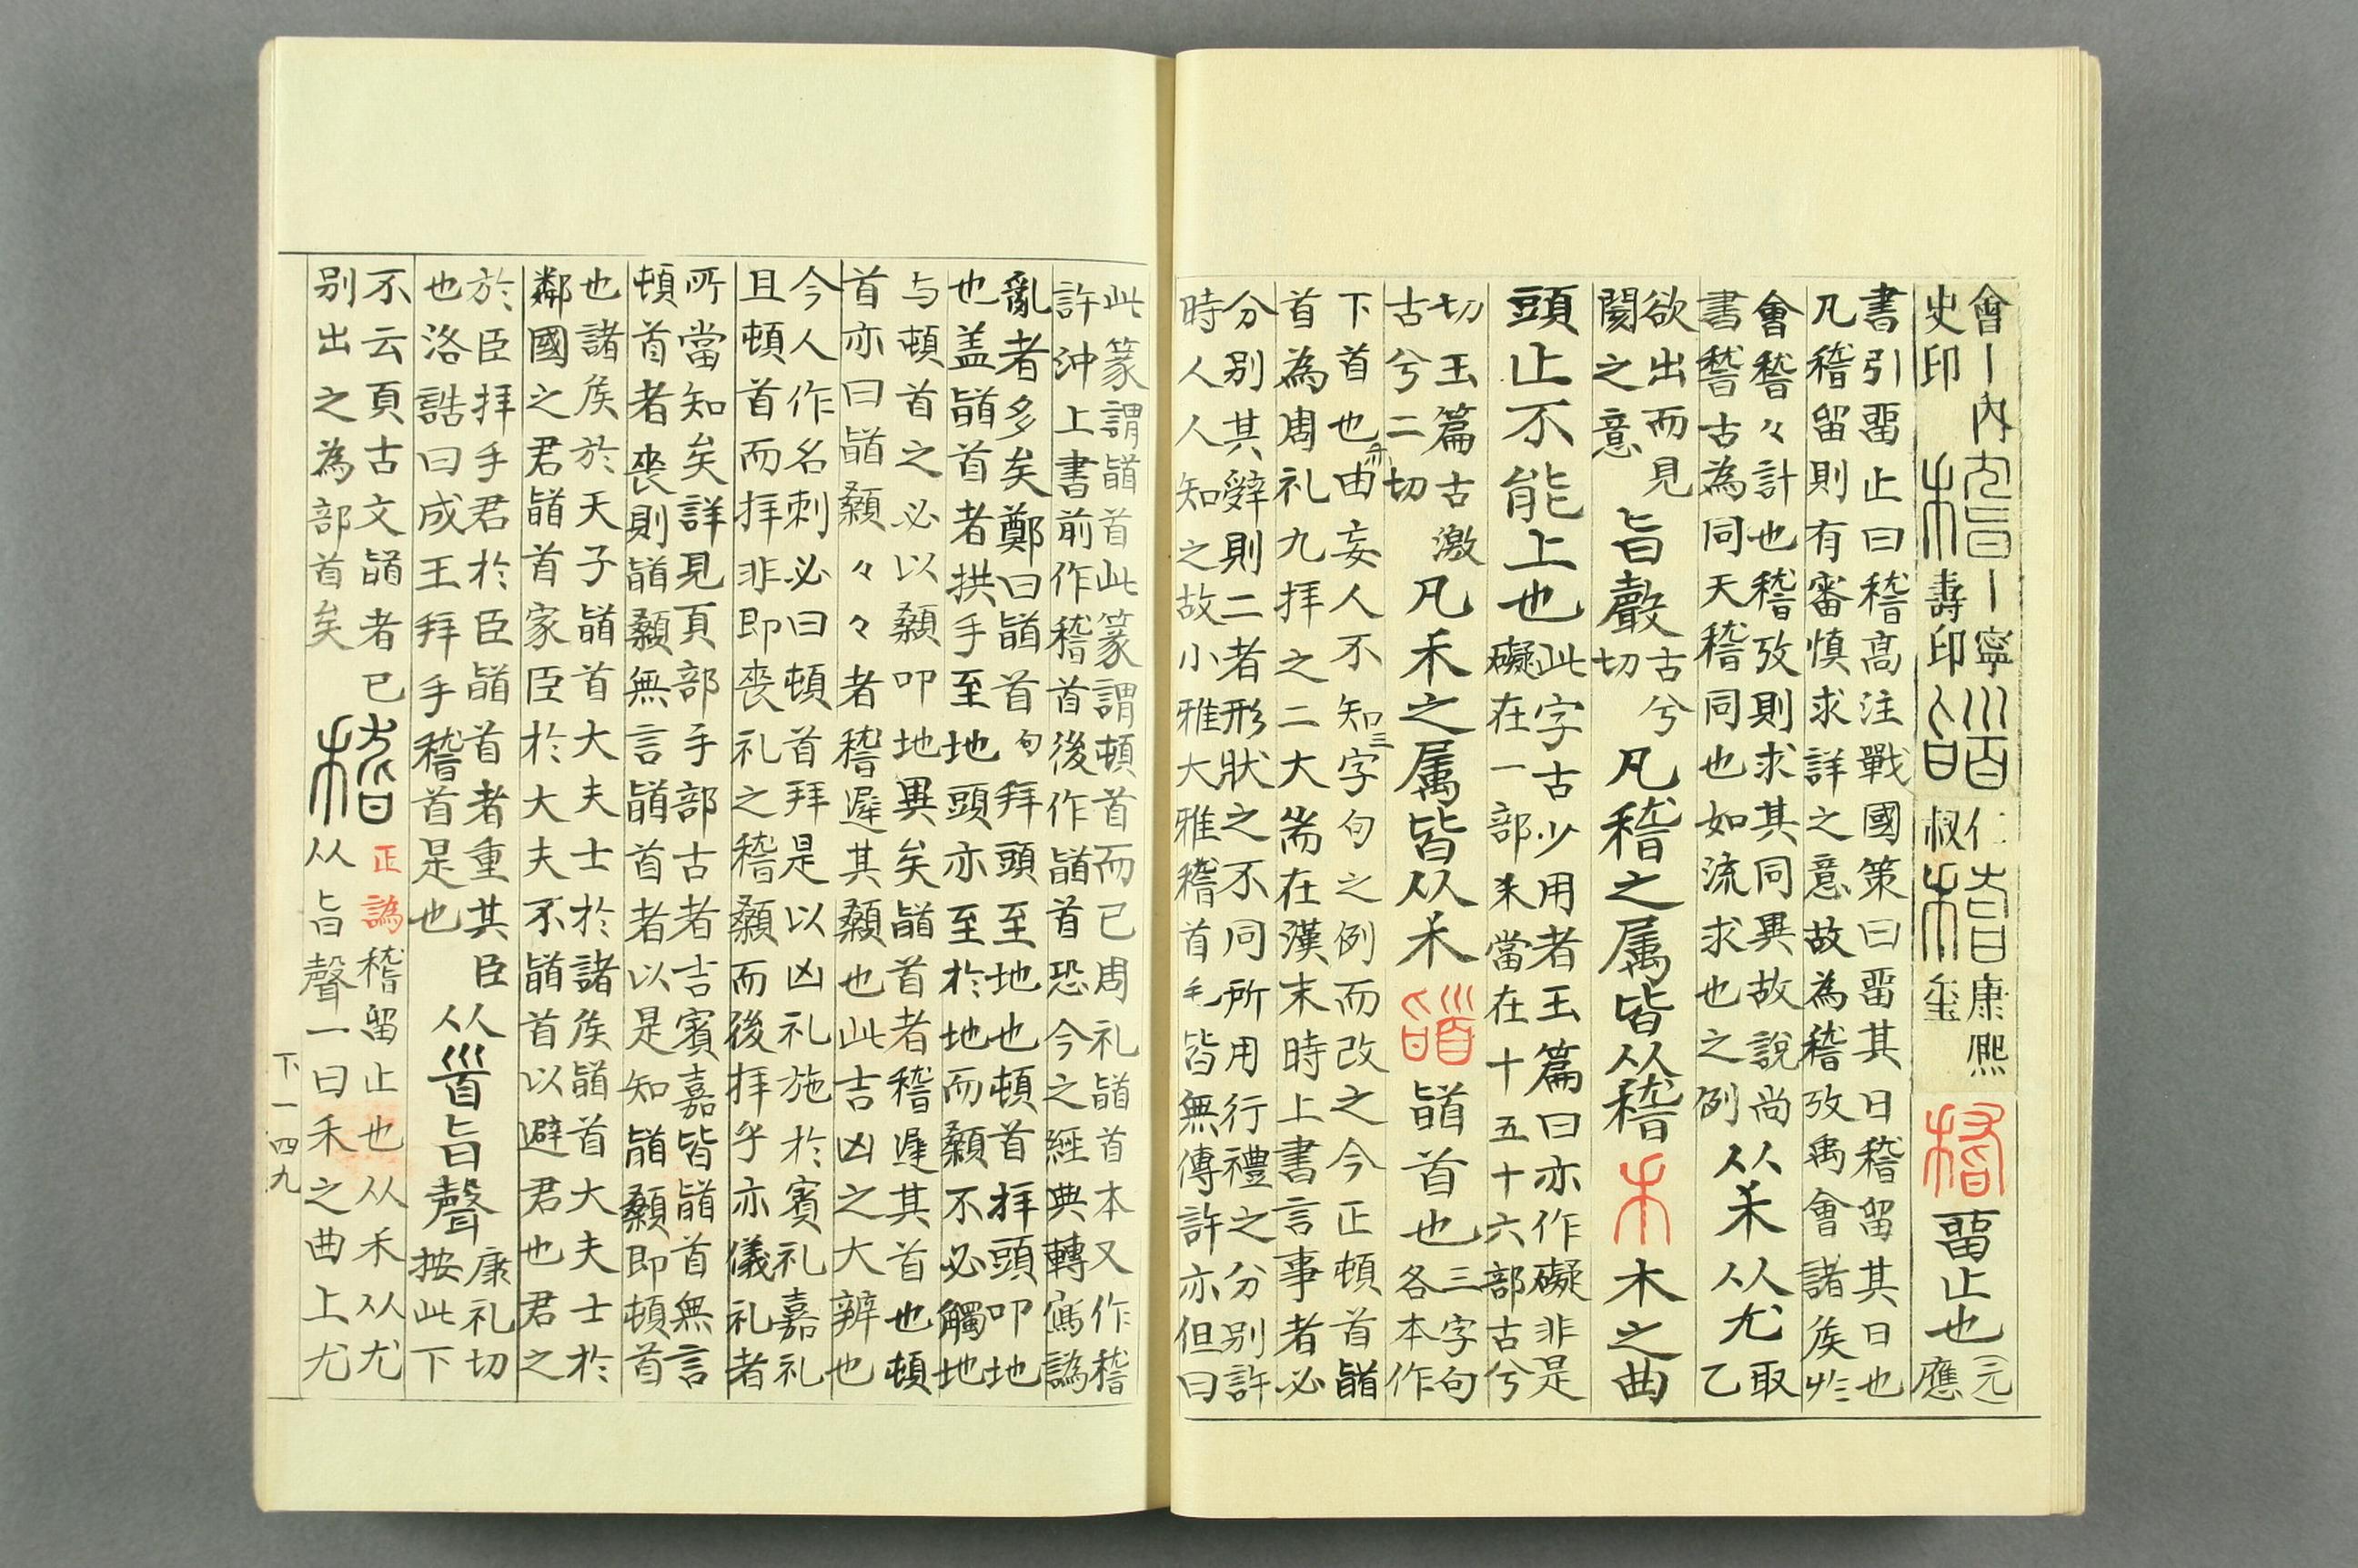 會丨內丨寧仁康熙
史印壽印叔璽
畱止也
(元)
應
書引畱止曰稽高注戰國策曰畱其日稽留其日也
凡稽留則有審慎求詳之意故為稽攷禹會諸矦於
會稽々計也稽攷則求其同異故說尚
書稽古為同天稽同也如流求也之例
从禾从尤
取
乙
欲出而見
閡之意
旨聲
古兮
切
凡稽之属皆从稽 禾 木之曲
頭止不能上也
此字古少用者玉篇曰亦作礙非是
礙在一部禾當在十五十六部古兮
切玉篇古激
古兮二切
凡禾之属皆从禾 䭫 䭫首也
三字句
各本作
下首也亦由妄人不知三字句之例而改之今正頓首䭫
首為周礼九拜之二大耑在漢末時上書言事者必
分别其辤則二者形狀之不同所用行禮之分别許
時人人知之故小雅大雅稽首毛皆無傳許亦但曰
此篆謂䭫首此篆謂頓首而已周礼䭫首本又作稽
許沖上書前作稽首後作䭫首恐今之經典轉寫譌
亂者多矣鄭曰䭫首句拜頭至地也頓首拜頭叩地
也盖䭫首者拱手至地頭亦至於地而顙不必觸地
与頓首之必以顙叩地異矣䭫首者稽遟其首也頓
首亦曰䭫顙々々者稽遟其顙也此吉凶之大辨也
今人作名刺必曰頓首拜是以凶礼施於賓礼嘉礼
且頓首而拜非即喪礼之稽顙而後拜乎亦儀礼者
所當知矣詳見頁部手部古者吉賓嘉皆䭫首無言
頓首者喪則䭫顙無言䭫首者以是知䭫顙即頓首
也諸矦於天子䭫首大夫士於諸矦䭫首大夫士於
鄰國之君䭫首家臣於大夫不䭫首以避君也君之
於臣拜手君於臣䭫首者重其臣
也洛誥曰成王拜手稽首是也
从𩠐旨聲
康礼切
按此下
不云頁古文䭫者已
别出之為部首矣
稽
正譌稽留止也从禾从尤
从旨聲一曰禾之曲上尤
下一四九